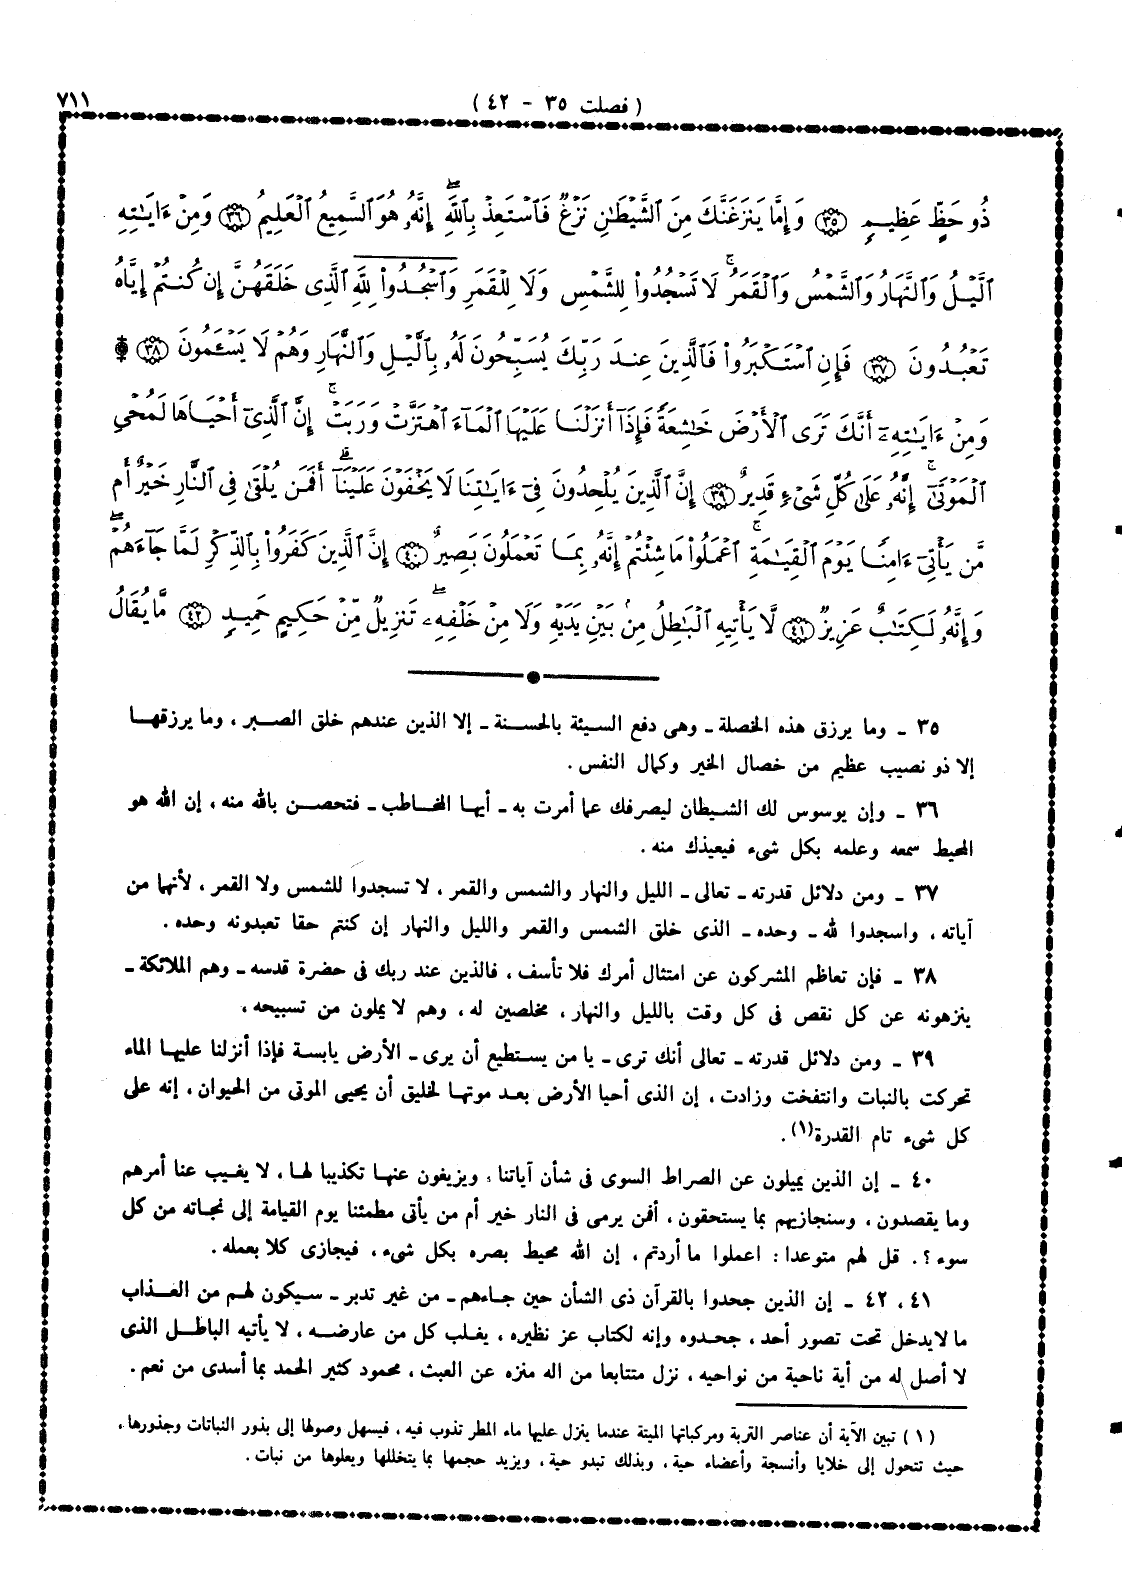 ٧١١
( فصلت ٣٥ - ٤٢ )
ذُو حَظٍّ عَظِيمٍ ٣٥ وَإِمَّا يَنزَغَنَّكَ مِنَ ٱلشَّيْطَٰنِ نَزْغٌ فَٱسْتَعِذْ بِٱللَّهِۖ إِنَّهُۥ هُوَ ٱلسَّمِيعُ ٱلْعَلِيمُ ٣٦ وَمِنْ ءَايَٰتِهِ
ٱلَّيْلُ وَٱلنَّهَارُ وَٱلشَّمْسُ وَٱلْقَمَرُۚ لَا تَسْجُدُوا۟ لِلشَّمْسِ وَلَا لِلْقَمَرِ وَٱسْجُدُوا۟ لِلَّهِ ٱلَّذِى خَلَقَهُنَّ إِن كُنتُمْ إِيَّاهُ
تَعْبُدُونَ ٣٧ فَإِنِ ٱسْتَكْبَرُوا۟ فَٱلَّذِينَ عِندَ رَبِّكَ يُسَبِّحُونَ لَهُۥ بِٱلَّيْلِ وَٱلنَّهَارِ وَهُمْ لَا يَسْـَٔمُونَ ٣٨ ۩
وَمِنْ ءَايَٰتِهِۦٓ أَنَّكَ تَرَى ٱلْأَرْضَ خَٰشِعَةً فَإِذَآ أَنزَلْنَا عَلَيْهَا ٱلْمَآءَ ٱهْتَزَّتْ وَرَبَتْۚ إِنَّ ٱلَّذِىٓ أَحْيَاهَا لَمُحْىِ
ٱلْمَوْتَىٰٓۚ إِنَّهُۥ عَلَىٰ كُلِّ شَىْءٍ قَدِيرٌ ٣٩ إِنَّ ٱلَّذِينَ يُلْحِدُونَ فِىٓ ءَايَٰتِنَا لَا يَخْفَوْنَ عَلَيْنَآۗ أَفَمَن يُلْقَىٰ فِى ٱلنَّارِ خَيْرٌ أَم
مَّن يَأْتِىٓ ءَامِنًا يَوْمَ ٱلْقِيَٰمَةِۚ ٱعْمَلُوا۟ مَا شِئْتُمْ إِنَّهُۥ بِمَا تَعْمَلُونَ بَصِيرٌ ٤٠ إِنَّ ٱلَّذِينَ كَفَرُوا۟ بِٱلذِّكْرِ لَمَّا جَآءَهُمْۖ
وَإِنَّهُۥ لَكِتَٰبٌ عَزِيزٌ ٤١ لَّا يَأْتِيهِ ٱلْبَٰطِلُ مِنۢ بَيْنِ يَدَيْهِ وَلَا مِنْ خَلْفِهِۦۖ تَنزِيلٌ مِّنْ حَكِيمٍ حَمِيدٍ ٤٢ مَّا يُقَالُ
٣٥ ـ وما يرزق هذه الخصلة ـ وهى دفع السيئة بالحسنة ـ إلا الذين عندهم خلق الصبر ، وما يرزقها
إلا ذو نصيب عظيم من خصال الخير وكمال النفس .
٣٦ ـ وإن يوسوس لك الشيطان ليصرفك عما أمرت به ـ أيها المخاطب ـ فتحصن بالله منه ، إن الله هو
المحيط سمعه وعلمه بكل شىء فيعيذك منه .
٣٧ ـ ومن دلائل قدرته ـ تعالى ـ الليل والنهار والشمس والقمر ، لا تسجدوا للشمس ولا القمر ، لأنها من
آياته ، واسجدوا لله ـ وحده ـ الذى خلق الشمس والقمر والليل والنهار إن كنتم حقا تعبدونه وحده .
٣٨ ـ فإن تعاظم المشركون عن امتثال أمرك فلا تأسف ، فالذين عند ربك فى حضرة قدسه ـ وهم الملائكة ـ
ينزهونه عن كل نقص فى كل وقت بالليل والنهار ، مخلصين له ، وهم لا يملون من تسبيحه ،
٣٩ ـ ومن دلائل قدرته ـ تعالى أنك ترى ـ يا من يستطيع أن يرى ـ الأرض يابسة فإذا أنزلنا عليها الماء
تحركت بالنبات وانتفخت وزادت ، إن الذى أحيا الأرض بعد موتها لخليق أن يحيى الموتى من الحيوان ، إنه على
كل شىء تام القدرة(١) .
٤٠ ـ إن الذين يميلون عن الصراط السوى فى شأن آياتنا ، ويزيغون عنها تكذيبا لها ، لا يغيب عنا أمرهم
وما يقصدون ، وسنجازيهم بما يستحقون ، أفمن يرمى فى النار خير أم من يأتى مطمئنا يوم القيامة إلى نجاته من كل
سوء ؟ . قل لهم متوعدا : اعملوا ما أردتم ، إن الله محيط بصره بكل شىء ، فيجازى كلا بعمله .
٤١ ، ٤٢ ـ إن الذين جحدوا بالقرآن ذى الشأن حين جاءهم ـ من غير تدبر ـ سيكون لهم من العذاب
ما لا يدخل تحت تصور أحد ، جحدوه وإنه لكتاب عز نظيره ، يغلب كل من عارضه ، لا يأتيه الباطل الذى
لا أصل له من أية ناحية من نواحيه ، نزل متتابعا من اله منزه عن العبث ، محمود كثير الحمد بما أسدى من نعم .
( ١ ) تبين الآية أن عناصر التربة ومركباتها الميتة عندما ينزل عليها ماء المطر تذوب فيه ، فيسهل وصولها إلى بذور النباتات وجذورها ،
حيث تتحول إلى خلايا وأنسجة وأعضاء حية ، وبذلك تبدو حية ، ويزيد حجمها بما يتخللها ويعلوها من نبات .